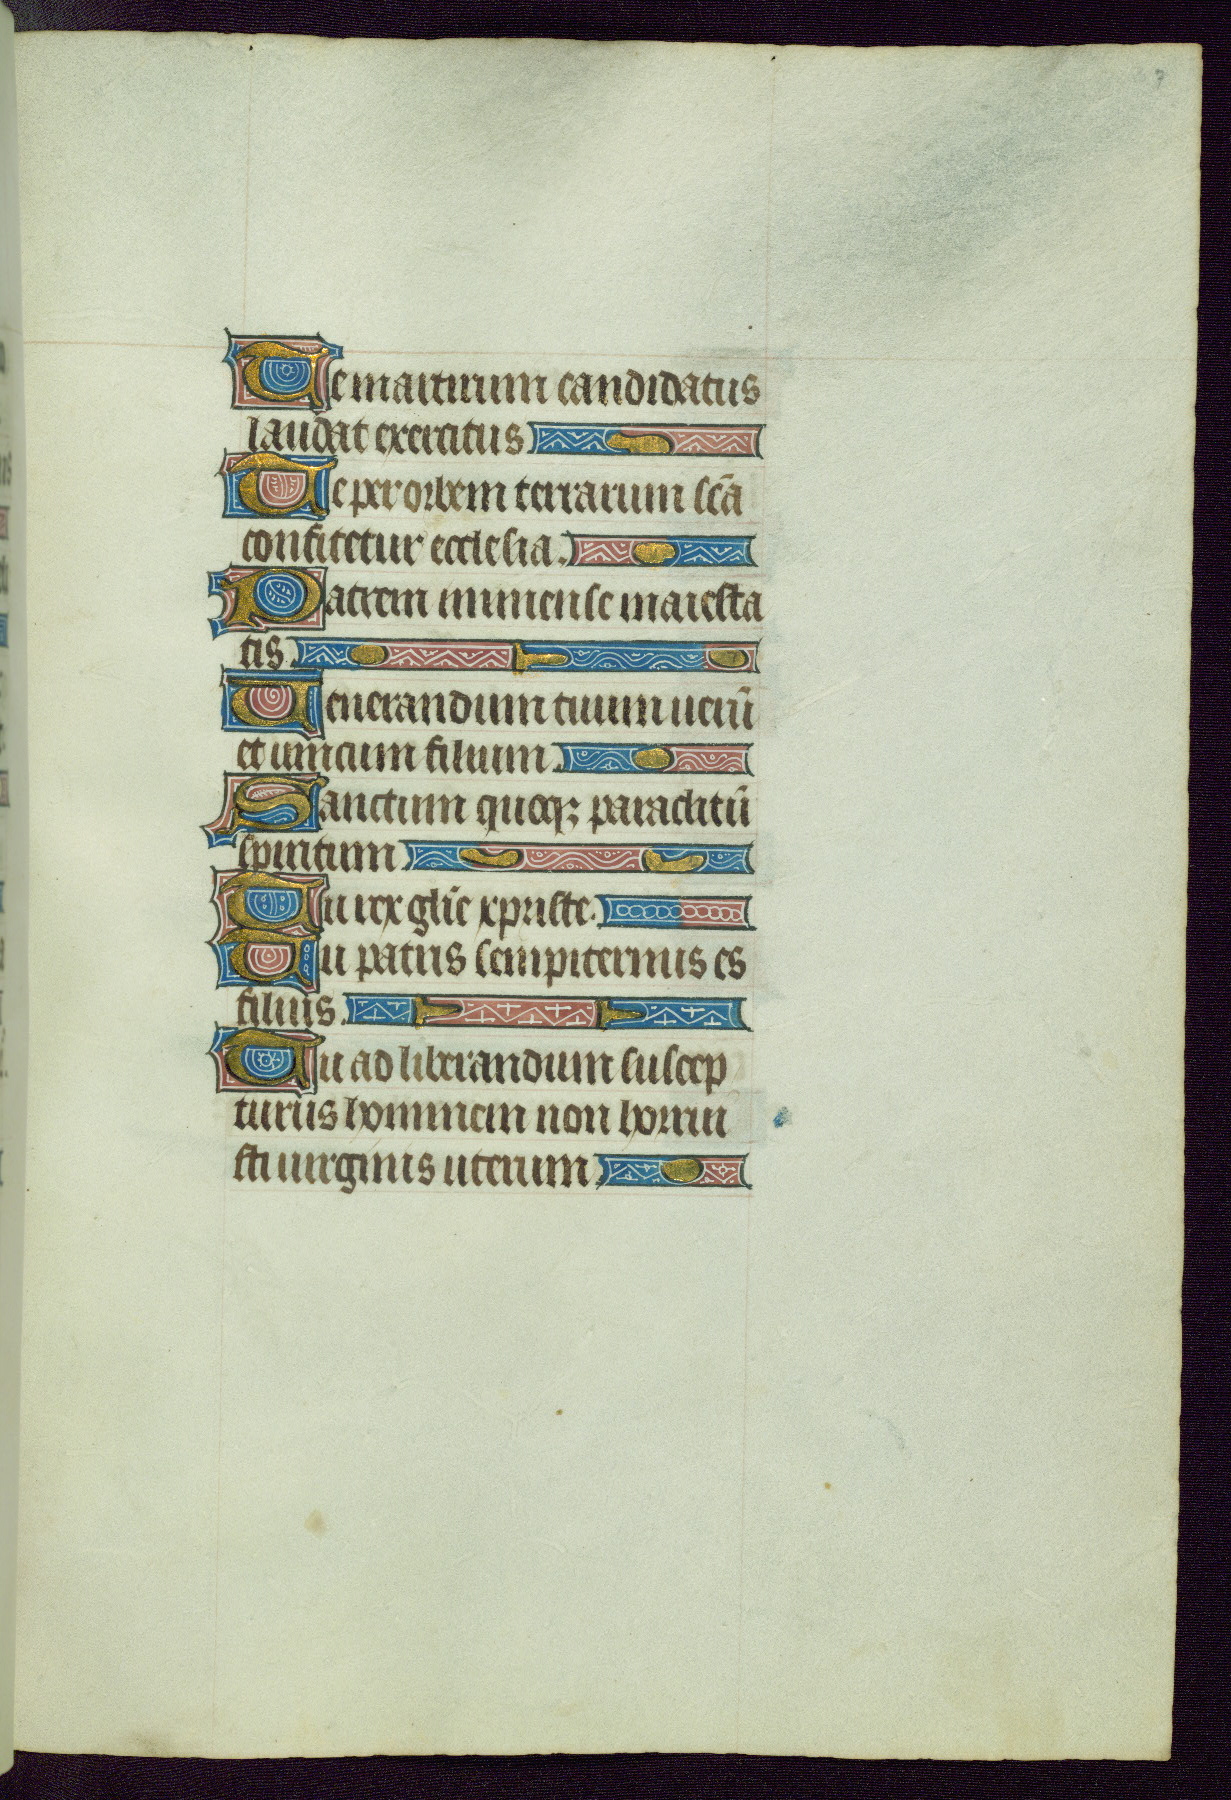 7
Te martirum candidatus
laudat exercitus
Te per orbem terrarum scā
confitetur ecclesia.
Patrem immense maiesta
tis.
Uenerandum tuum uerū
et unicum filium.
Sanctum quoqꝫ paraclitū
spiritum
Tu rex gl̄ie xpriste.
Tu patris sempiternus es
filius.
Tu ad liberandum suscep
turus hominem non horrui
sti uirginis uterum